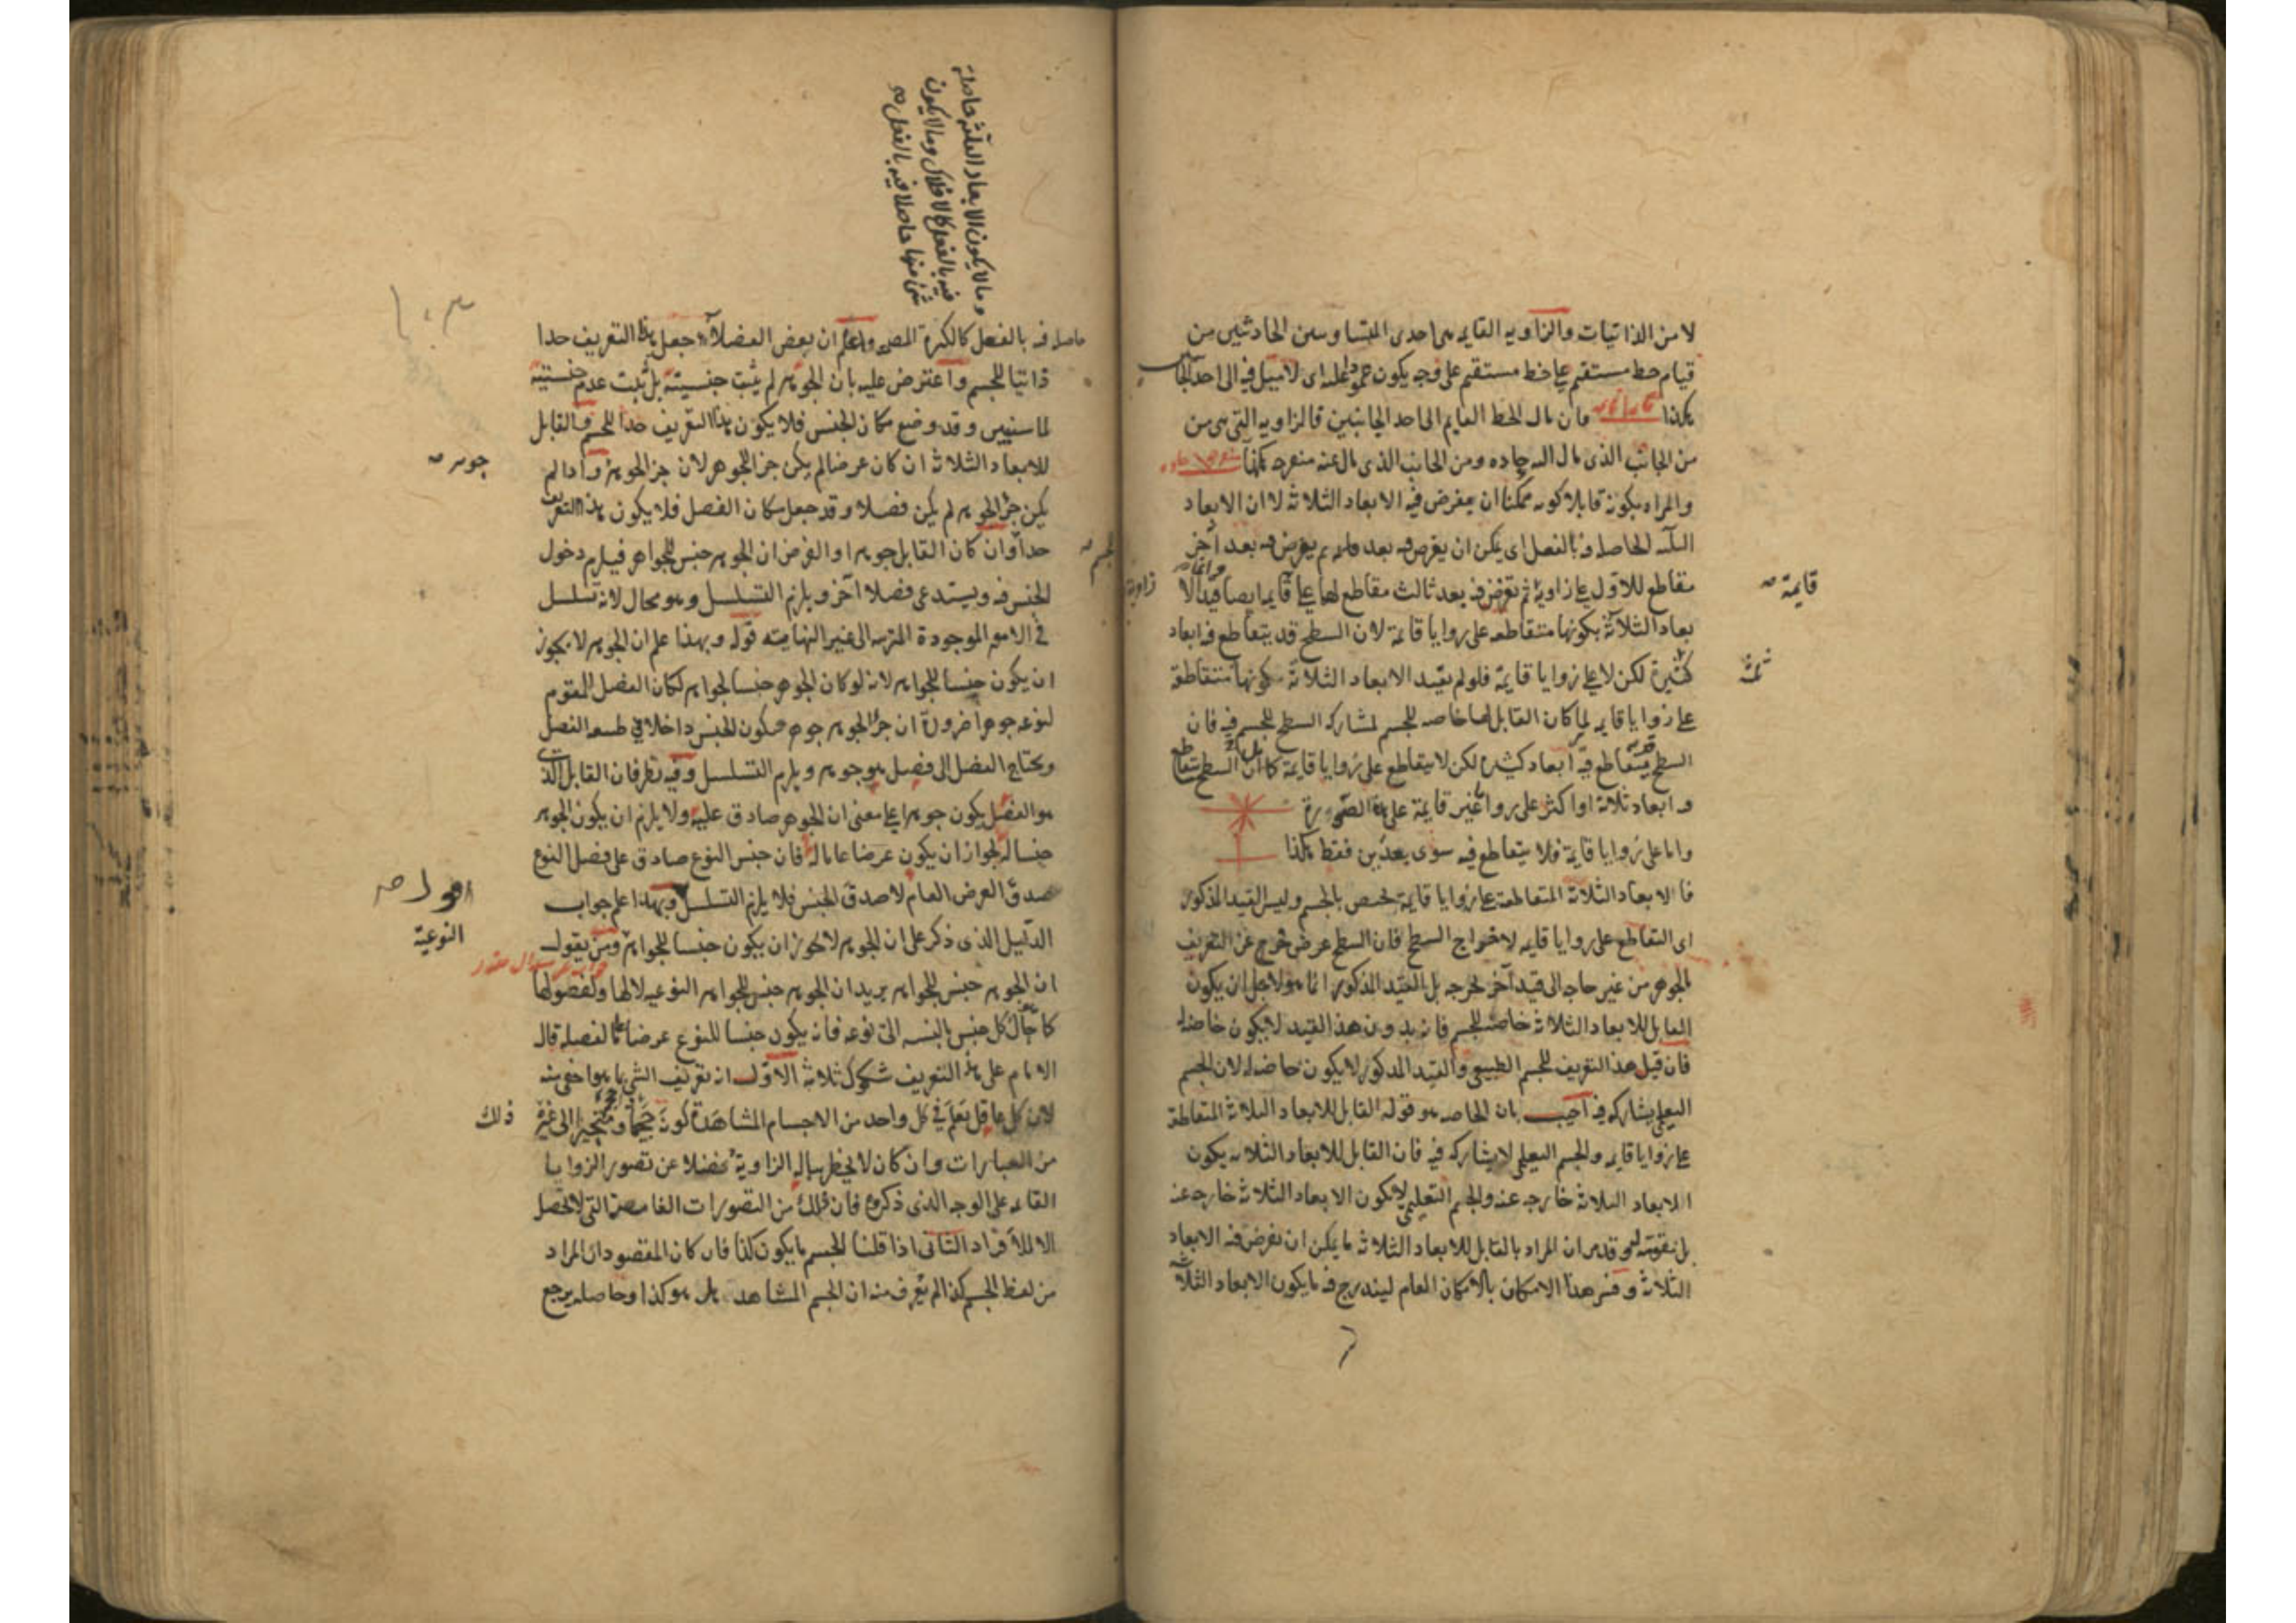 لا من الذاتيات والزاويه القايمه هى احدى المتساويتين الحادثتين من
قيام خط مستقيم على خط مستقيم على وجه يكون عمودا عليه اى لا ميل فيه الى احد الجانبين
هكذا قايمه قايمه فان مال الخط القايم الى احد الجانبين فالزاويه التى هى من
من الجانب الذى مال اليه حاده ومن الجانب الذى مال عنه منفرجه هكذا منفرجه حاده
والمراد بكونه قابلا كونه ممكنا ان يفرض فيه الابعاد الثلاثة لا ان الابعاد
الثلثه الحاصله فيه بالفعل اى يمكن ان يفرض فيه بعد ثم يفرض فيه بعد آخر
مقاطع للاول على زاوية ثم يفرض فيه بعد ثالث مقاطع لها على قايمه ايضا وانما قيد الا
قايمة
زاوية
بعاد الثلاثة بكونها متقاطعه على زوايا قايمة لان السطح قد يتقاطع فيه ابعاد
كثيرة لكن لا على زوايا قايمة فلو لم يقيد الابعاد الثلاثة بكونها متقاطعة
ثلثة
على زوايا قايمه لما كان القابل لها خاصه للجسم لمشاركه السطح للجسم فيه فان
السطح يتقاطع فيه ابعاد كثيره لكن لا يتقاطع على زوايا قايمة كما ان السطح يتقاطع
فيه ابعاد ثلاثة او اكثر على زوايا غير قايمة على هذه الصورة
واما على زوايا قايمة فلا يتقاطع فيه سوى بعدين فقط هكذا
فالابعاد الثلاثة المتقاطعة على زوايا قايمة تختص بالجسم وليس القيد المذكور
اى التقاطع على زوايا قايمه لاخراج السطح فان السطح عرض خرج عن التعريف
بالجوهر من غير حاجه الى قيد آخر يخرجه بل القيد المذكور انما هو لاجل ان يكون
القابل للابعاد الثلاثة خاصة للجسم فانه بدون هذا القيد لا يكون خاصه له
فان قيل هذا التعريف للجسم الطبيعى والقيد المذكور لا يكون خاصه له لان الجسم
التعليمى يشاركه فيه اجيب بان الخاصه هو قوله القابل للابعاد الثلاثة المتقاطعة
على زوايا قايمه والجسم التعليمى لا يشاركه فيه فان القابل للابعاد الثلاثه يكون
الابعاد الثلاثة خارجه عنه والجسم التعليمى لا تكون الابعاد الثلاثة خارجه عنه
بل مقومة له وقد مر ان المراد بالقابل للابعاد الثلاثة ما يمكن ان يفرض فيه الابعاد
الثلاثة وفسر هذا الامكان بالامكان العام ليندرج فيه ما يكون الابعاد الثلاثة
وما لا يكون الابعاد الثلثة حاصلة
فيه بالفعل كالافلاك وما لا يكون
شئ منها حاصلا فيه بالفعل صح
حاصله فيه بالفعل كالكرة المصمته واعلم ان بعض الفضلاء جعل هذا التعريف حدا
ذاتيا للجسم واعترض عليه بان الجوهر لم يثبت جنسيته بل ثبت عدم جنسيته
لما سنبين وقد وضع مكان الجنس فلا يكون هذا التعريف حدا للجسم والقابل
للابعاد الثلاثة ان كان عرضا لم يكن جزءا للجوهر لان جزء الجوهر واذا لم
جوهر صح
يكن جزء الجوهر لم يكن فصلا وقد جعل مكان الفصل فلا يكون هذا التعريف
حدا وان كان القابل جوهرا والفرض ان الجوهر جنس للجواهر فيلزم دخول
للجسم صح
الجنس فيه ويستدعى فصلا آخر ويلزم التسلسل وهو محال لانه تسلسل
فى الامور الموجودة المترتبه الى غير النهايه قوله وبهذا علم ان الجوهر لا يجوز
ان يكون جنسا للجواهر لانه لو كان الجوهر جنسا لجواهر لكان الفصل المقوم
لنوعه جوهرا ضرورة ان جزء الجوهر جوهر فيكون الجنس داخلا فى طبيعه الفصل
ويحتاج الفصل الى فصل هو جوهر ويلزم التسلسل وفيه نظر فان القابل الذى
هو الفصل يكون جوهرا على معنى ان الجوهر صادق عليه ولا يلزم ان يكون الجوهر
جنسا له لجواز ان يكون عرضا عاما له فان جنس النوع صادق على فصل النوع
صدق العرض العام لا صدق الجنس فلا يلزم التسلسل وبهذا علم جواب
الدليل الذى ذكر على ان الجوهر لا يجوز ان يكون جنسا للجواهر ومن يقول
النوعية
جواب عن سوال مقدر
ان الجوهر جنس للجواهر يريد ان الجوهر جنس للجواهر النوعيه لا لها ولفصولها
كما حال كل جنس بالنسبه الى نوعه فانه يكون جنسا للنوع عرضا عاما لفصله قال
الامام على هذا التعريف شكوك ثلاثة الاول انه تعريف الشى بما هو اخفى منه
لان كل عاقل يعلم فى كل واحد من الاجسام المشاهدة كونه حجما ومتحيزا الى غير
ذلك
من العبارات وان كان لا يخطر بباله الزاوية فضلا عن تصور الزوايا
القايمه على الوجه الذى ذكروه فان ذلك من التصورات الغامضة التى لا تحصل
الا للافراد الثانى اذا قلنا الجسم ما يكون كذا فان كان المقصود ان المراد
من لفظ الجسم كذا لم يعرف منه ان الجسم المشاهد هل هو كذا وحاصله يرجع